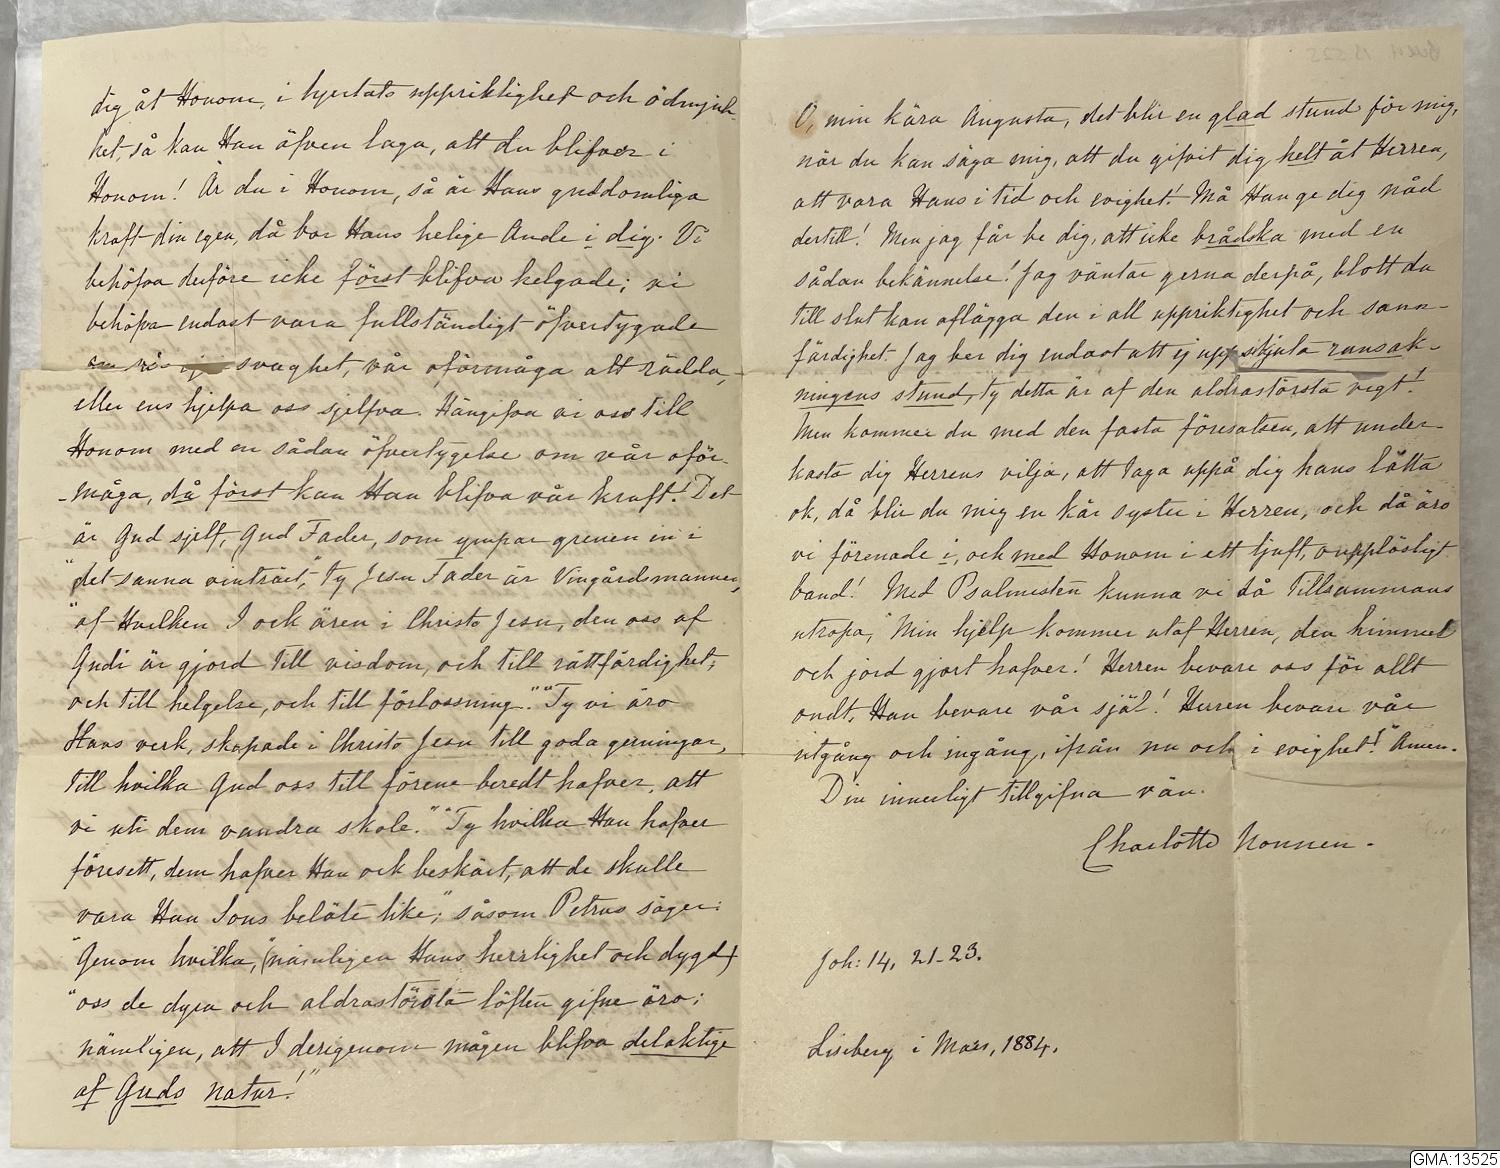 dig åt Honom, i hjertats uppriktighet och ödmjuk-
het, så kan Han äfven laga, att du blifver i
Honom! Är du i Honom, så är Hans guddomliga
kraft din egen, då bor Hans helige Ande i dig. Vi
behöfva derföre icke först blifva helgade; vi
behöfva endast vara fullständigt öfvertygade
om vår svaghet, vår oförmåga att rädda,
eller ens hjelpa oss sjelfva. Hängifva vi oss till
Honom med en sådan öfvertygelse om vår oför-
-måga, då först kan Han blifva vår kraft! Det
är Gud sjelf, Gud Fader, som ympar grenen in i
"det sanna vinträet," ty Jesu Fader är Vingårdsmannen,
"af Hvilken I ock ären i Christo Jesu, den oss af
Gudi är gjord till visdom, och till rättfärdighet,
och till helgelse, och till förlossning." "Ty vi äro
Hans verk, skapade i Christo Jesu till goda gerningar,
till hvilka Gud oss till förene beredt hafver, att
vi uti dem vandra skole." "Ty hvilka Han hafver
föresett, dem hafver Han ock beskärt, att de skulle
vara Hans Sons beläte like;" såsom Petrus säger:
"Genom hvilka," (nämligen Hans herrlighet och dygd)
"oss de dyra och aldrastörsta löften gifne äro;
nämligen, att I derigenom mågen blifva delaktige
af Guds natur!"
O, min kära Augusta, det blir en glad stund för mig,
när du kan säga mig, att du gifvit dig helt åt Herren,
att vara Hans i tid och evighet! Må Han ge dig nåd
dertill! Men jag får be dig, att icke brådska med en
sådan bekännelse! Jag väntar gerna derpå, blott du
till slut kan aflägga den i all uppriktighet och sann-
färdighet. Jag ber dig endast att ej uppskjuta ransak-
ningens stund, ty detta är af den aldrastörsta vigt!
Men kommer du med den fasta föresatsen, att under-
kasta dig Herrens vilja, att taga uppå dig hans lätta
ok, då blir du mig en kär syster i Herren, och då äro
vi förenade i, och med Honom i ett ljuft, oupplösligt
band! Med Psalmisten kunna vi då tillsammans
utropa, "Min hjelp kommer utaf Herren, den himmel
och jord gjort hafver! Herren bevare oss för allt
ondt, Han bevare vår själ! Herren bevare vår
utgång och ingång, ifrån nu och i evighet!" Amen.
Din innerligt tillgifna vän.
Charlotte Nonnen.
Joh: 14, 21-23.
Liseberg i Mars, 1884.
GMA:13525